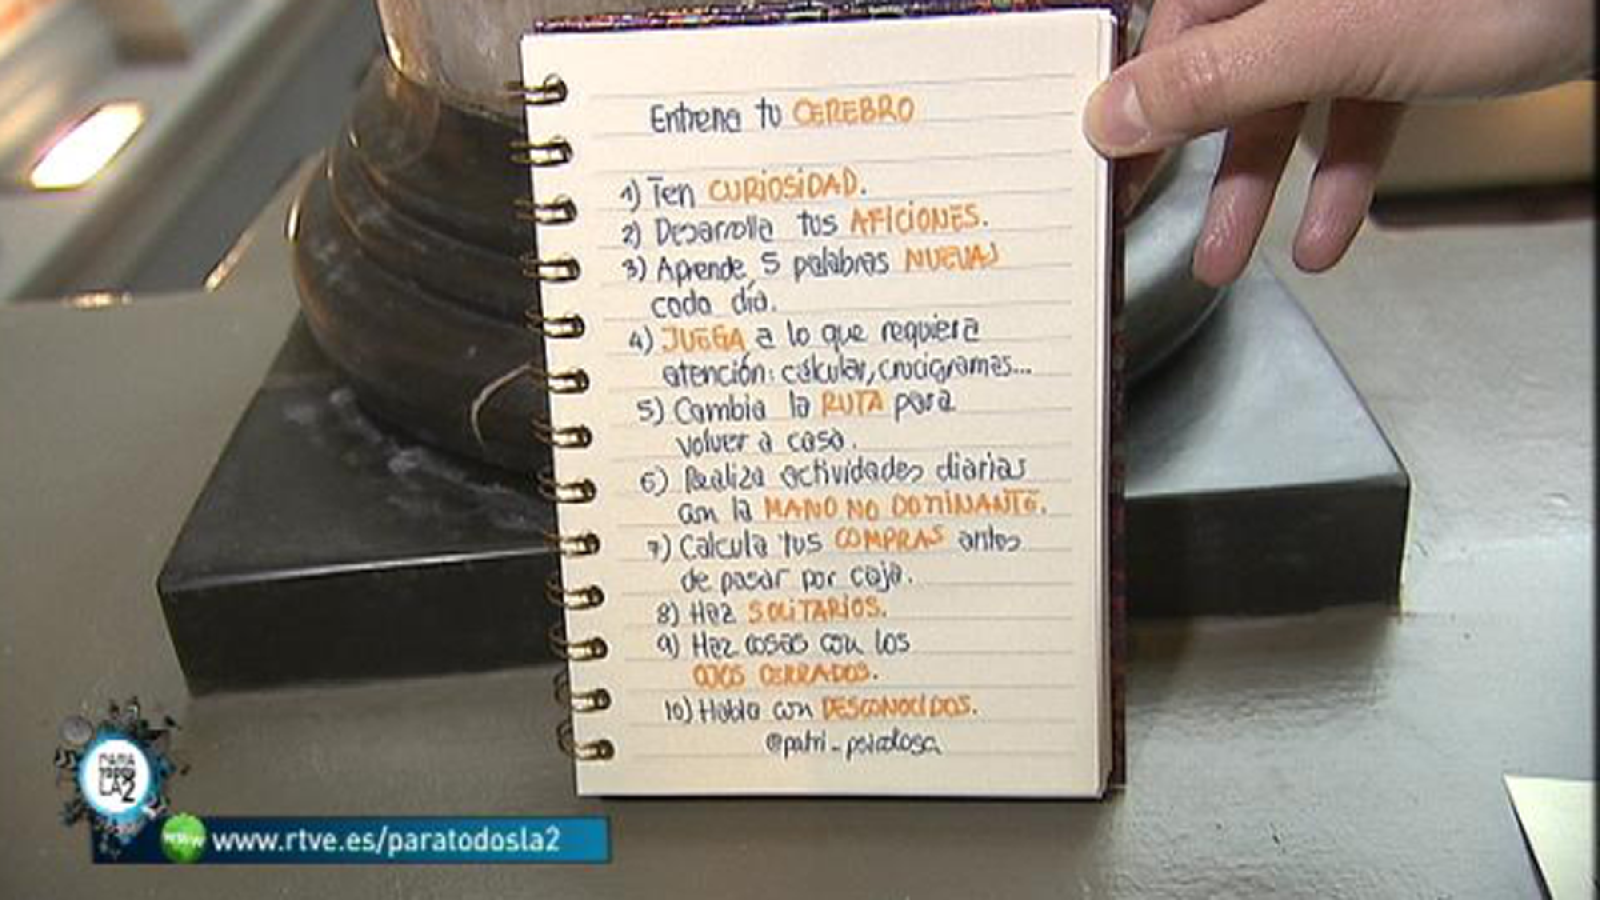 Entrena tu CEREBRO
1) Ten CURIOSIDAD.
2) Desarrolla tus AFICIONES.
3) Aprende 5 palabras NUEVAS
cada día.
4) JUEGA a lo que requiera
atención: calcular, crucigramas...
5) Cambia la RUTA para
volver a casa.
6) Realiza actividades diarias
con la MANO NO DOMINANTE.
7) Calcula tus COMPRAS antes
de pasar por caja.
8) Haz SOLITARIOS.
9) Haz cosas con los
OJOS CERRADOS.
10) Habla con DESCONOCIDOS.
@patri_psicologa
PARA
TODOS
LA2
www.rtve.es/paratodosla2